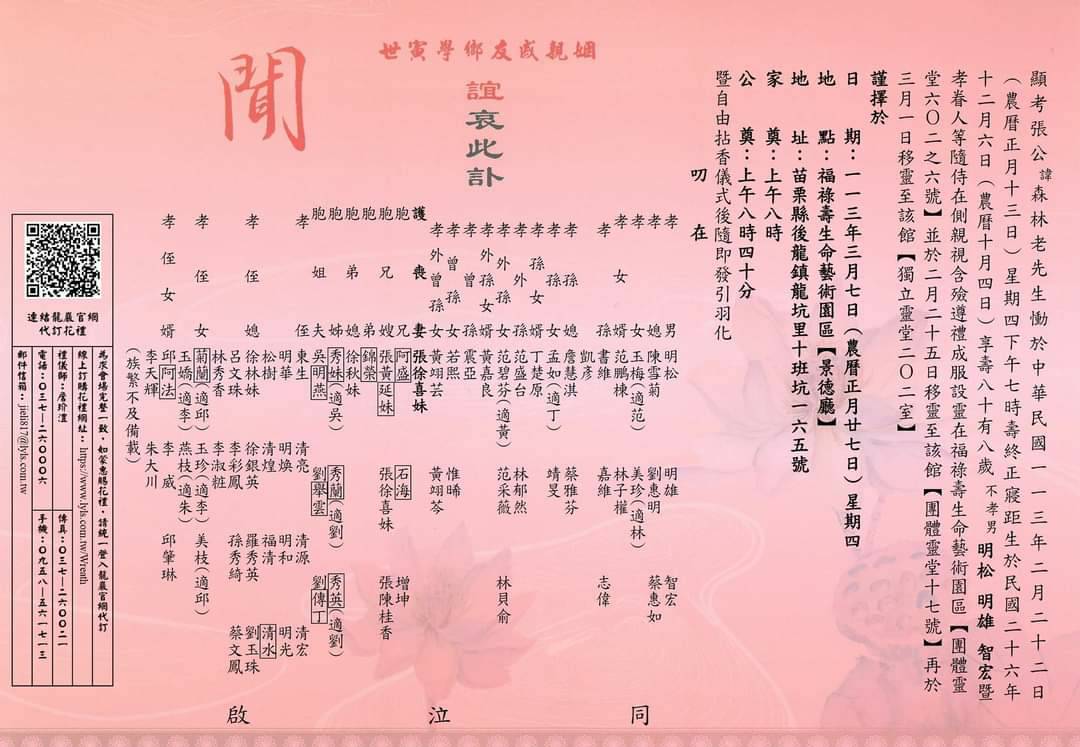 顯考張公諱森林老先生慟於中華民國一一三年二月二十二日
（農曆正月十三日）星期四下午七時壽終正寢距生於民國二十六年
十二月六日（農曆十月四日）享壽八十有八歲 不孝男 明松 明雄 智宏暨
孝眷人等隨侍在側親視含殮遵禮成服設靈在福祿壽生命藝術園區【團體靈
堂六〇二之六號】並於二月二十五日移靈至該館【團體靈堂十七號】再於
三月一日移靈至該館【獨立靈堂二〇二室】
謹擇於
日期：一一三年三月七日（農曆正月廿七日）星期四
地點：福祿壽生命藝術園區【景德廳】
地址：苗栗縣後龍鎮龍坑里十班坑一六五號
家奠：上午八時
公奠：上午八時四十分
暨自由拈香儀式後隨即發引羽化
叨在
姻親戚友鄉學寅世
誼哀此訃
聞
孝男 明松 明雄 智宏
孝媳 陳雪菊 劉惠明 蔡惠如
孝女 玉梅（適范） 美珍（適林）
孝女婿 范鵬棟 林子權
孝孫 書維 嘉維 志偉
凱彥
孝孫媳 詹慧淇 蔡雅芬
孝孫女 孟如（適丁） 靖旻
孝孫女婿 丁楚原
孝外孫 范盛台 林郁然
孝外孫女 范碧芬（適黃） 范采薇 林貝俞
孝外孫女婿 黃嘉良
孝曾孫 震亞
孝曾孫女 若熙 惟晞
孝外曾孫女 黃翊芸 黃翊芩
護喪妻 張徐喜妹
胞兄 阿盛 石海 增坤
胞兄嫂 張黃延妹 張徐喜妹 張陳桂香
胞弟 錦榮
胞弟媳 徐秋妹
胞姐 秀妹（適吳） 秀蘭（適劉） 秀英（適劉）
胞姐夫 吳明燕 劉舉雲 劉傳丁
孝侄 東生 清亮 清源 清宏
明華 明煥 明和 明光
松樹 清煌 福清 清水
孝侄媳 徐林妹 徐銀英 羅秀英 劉玉珠
呂文珠 李彩鳳 孫秀綺 蔡文鳳
林秀香 李淑粧
孝侄女 蘭蘭（適邱） 玉珍（適李） 美枝（適邱）
玉嬌（適李） 燕枝（適朱）
孝侄女婿 邱阿法 李威 邱肇琳
李天輝 朱大川
（族繁不及備載）
同泣啟
連結龍巖官網
代訂花禮
為求會場完整一致，如蒙惠賜花禮，請統一登入龍巖官網代訂
線上訂購花禮網址：https://www.lyls.com.tw/Wreath
禮儀師：詹玠澧
傳真：〇三七—二六〇〇二一
電話：〇三七—二六〇〇〇六
手機：〇九五八—五六一七一三
郵件信箱：jieli817@lyls.com.tw